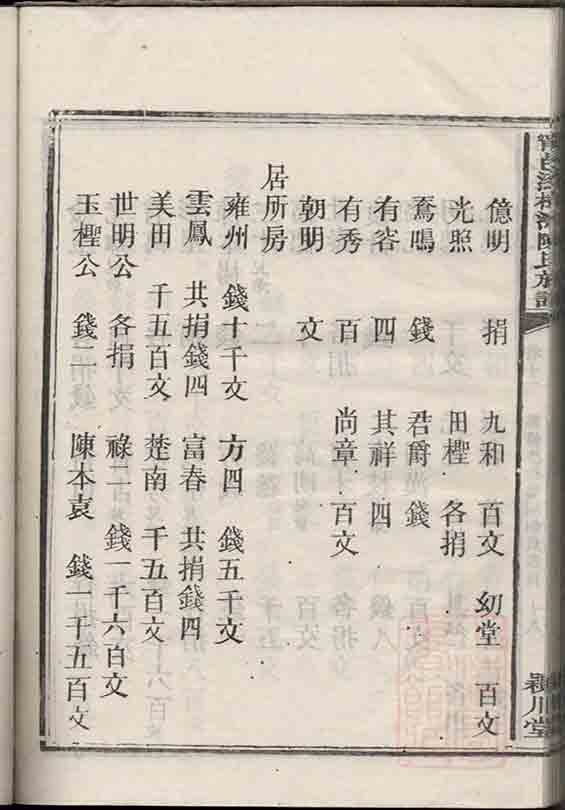 億明　捐　九和　百文　幼堂　百文
光照　　　田樫　各捐
鴌鳴　錢　君爵　錢
有容　四　其祥　四
有秀　百　尚章　百文
朝明　文
居所房
雍州　錢十千文　方四　錢五千文
雲鳳　共捐錢四　富春　共捐錢四
美田　千五百文　楚南　千五百文
世明公　各捐　祿二　錢一千六百文
玉樫公　錢二　陳本袁　錢一千五百文
陳氏族譜
潁川堂